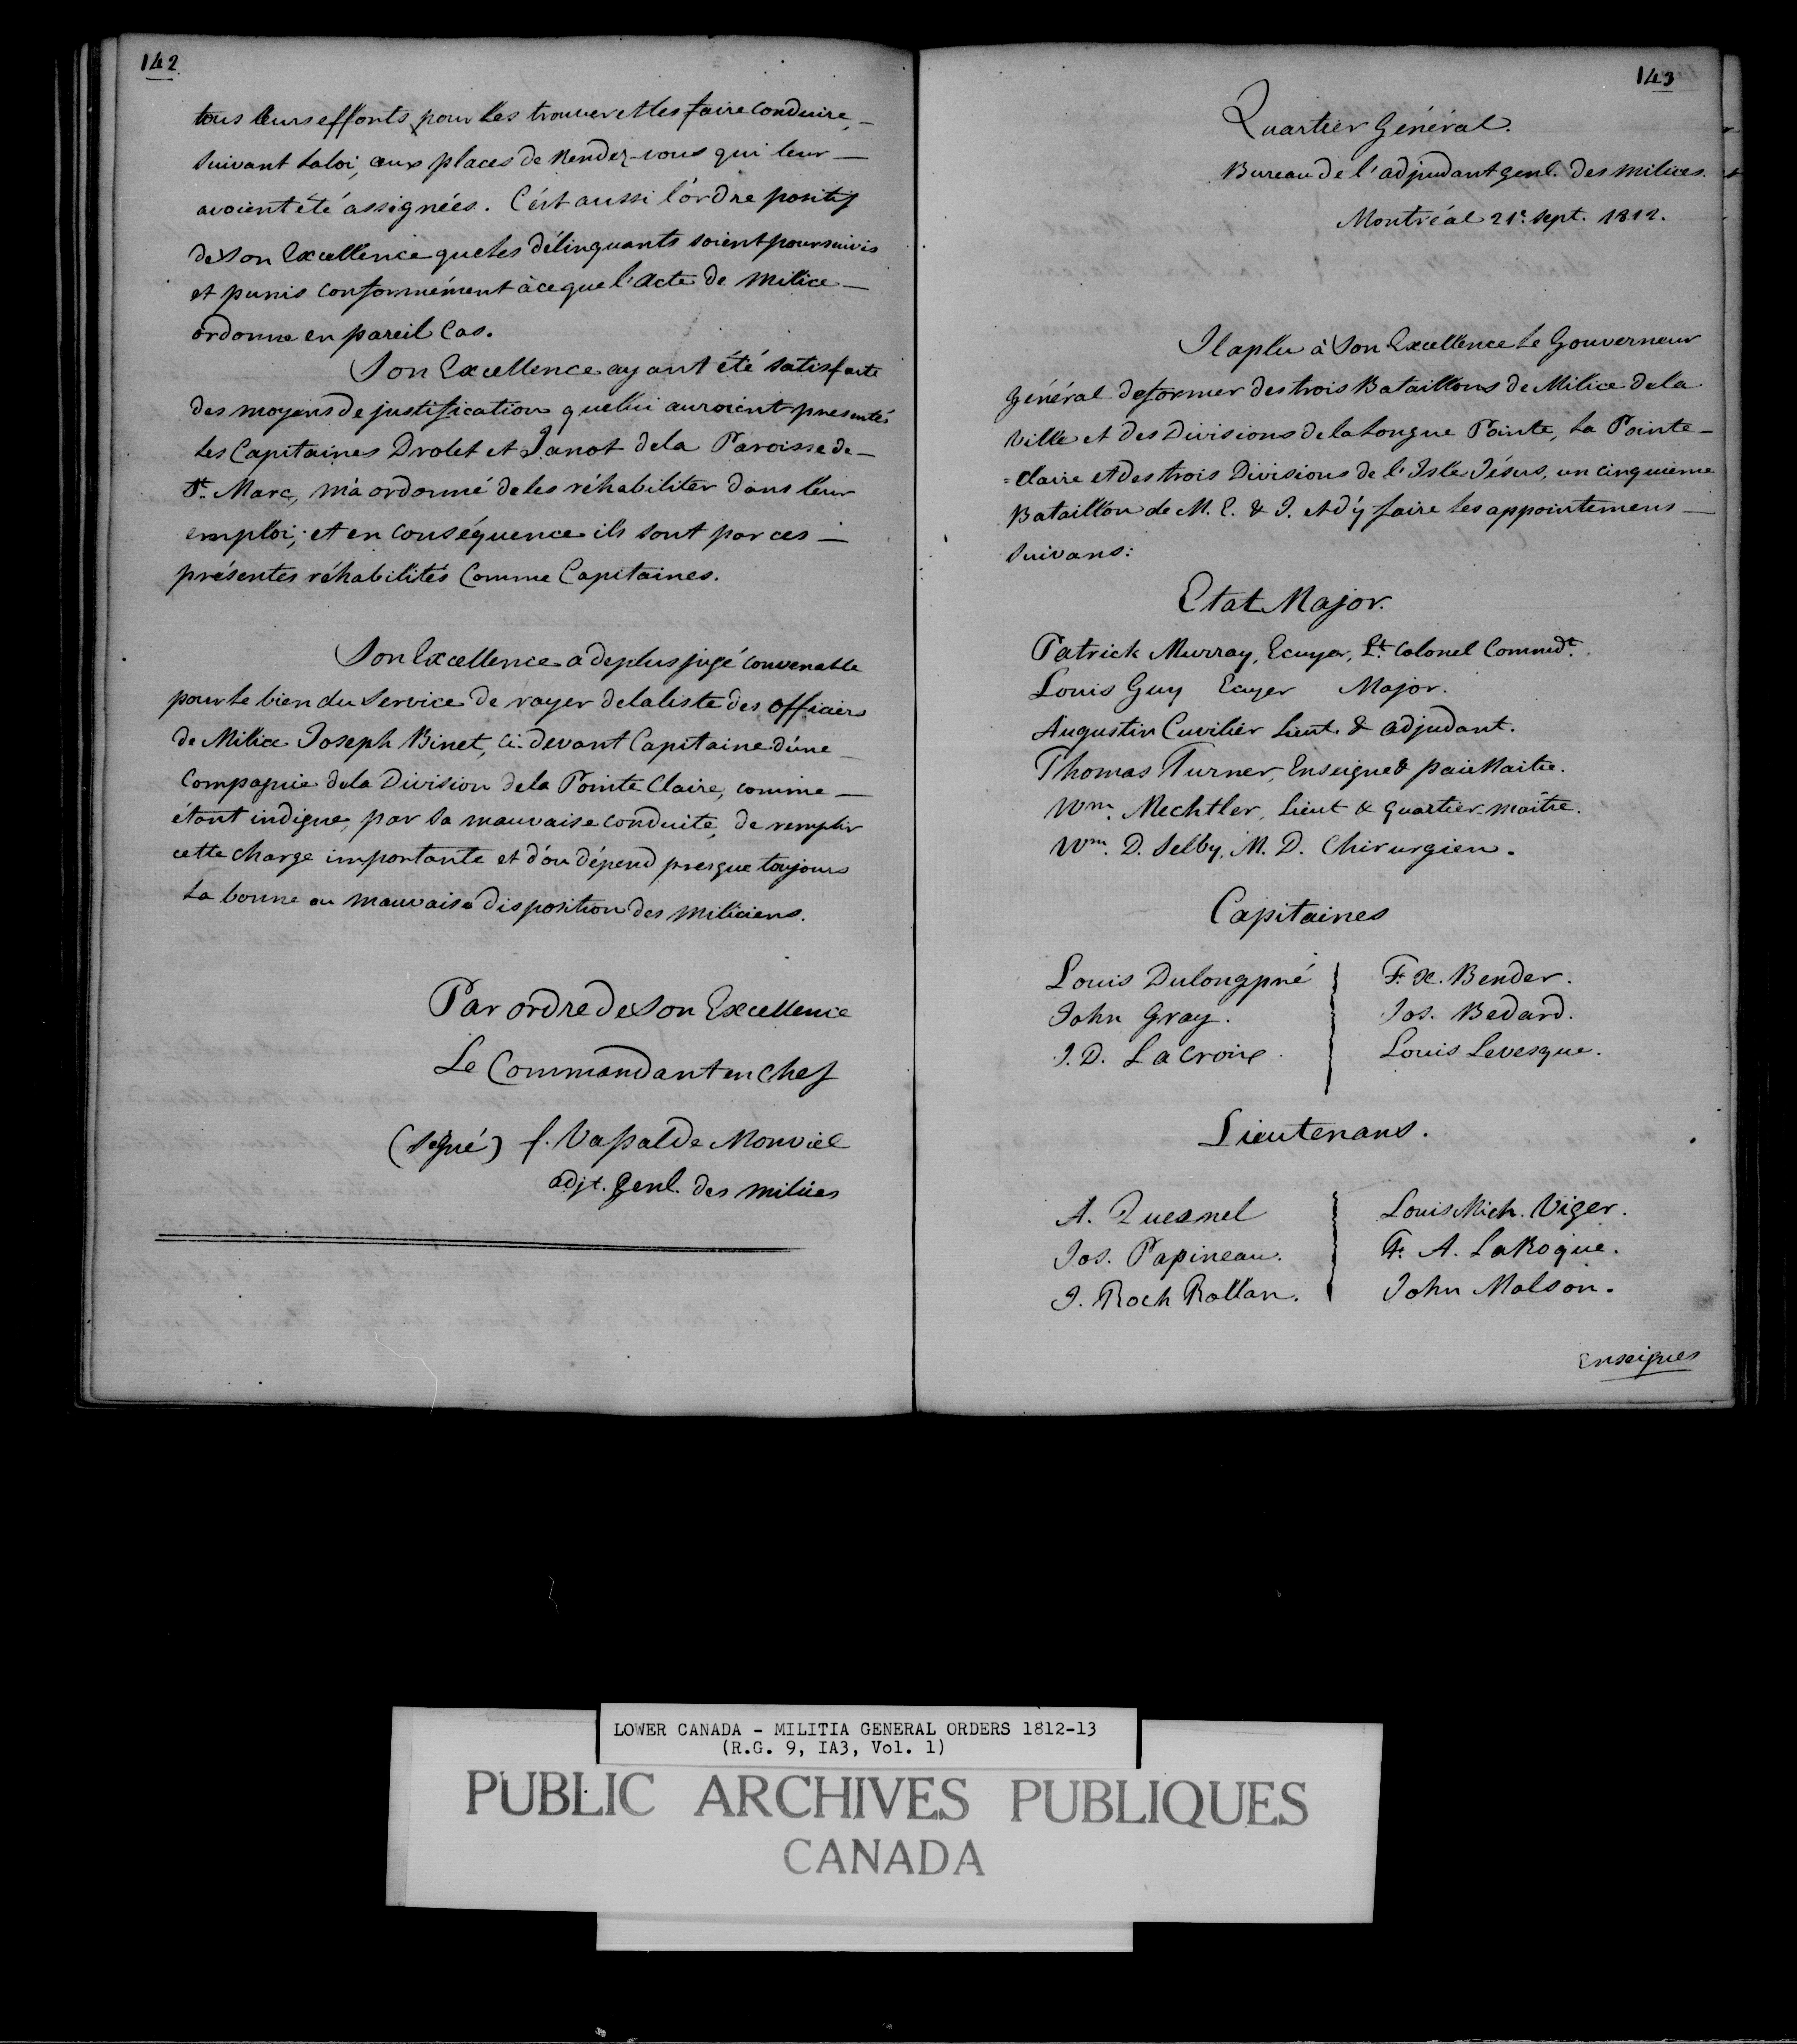 142
tous leurs efforts pour les trouver et les faire conduire,
suivant la loi, aux places de Rendez-vous qui leur
avoient été assignées. C'est aussi l'ordre positif
de Son Excellence que les délinquants soient poursuivis
et punis conformément à ce que l'Acte de Milice
ordonne en pareil Cas.
Son Excellence ayant été satisfaite
des moyens de justification que lui auroient presentés
les Capitaines Drolet et Janot de la Paroisse de
St. Marc, m'a ordonné de les réhabiliter dans leur
emploi; et en conséquence ils sont par ces
présentes réhabilités Comme Capitaines.
Son Excellence a de plus jugé convenable
pour le bien du Service de rayer de la liste des Officiers
de Milice Joseph Binet, Ci-devant Capitaine d'une
Compagnie de la Division de la Pointe Claire, comme
étant indigne, par sa mauvaise conduite, de remplir
cette charge importante et d'où dépend presque toujours
la bonne ou mauvaise disposition des Miliciens.
Par ordre de Son Excellence
Le Commandant en Chef
(Signé) f. Vassal de Monviel
adjt. Genl. des milices
143
Quartier Général.
Bureau de l'adjudant genl. des milices.
Montréal 21e. Sept. 1812.
Il a plu à Son Excellence le Gouverneur
Général de former des trois Bataillons de Milice de la
Ville et des Divisions de la Longue Pointe, la Pointe-
=claire et des trois Divisions de l'Isle Jésus, un cinquieme
Bataillon de M. E. & I. et d'y faire les appointemens
suivans:
Etat Major.
Patrick Murray, Ecuyer, Lt. Colonel Commdt.
Louis Guy Ecuyer Major.
Augustin Cuvilier Lieut. & adjudant.
Thomas Turner, Enseigne & paie Maitre.
Wm. Mechtler, Lieut & Quartier-maître.
Wm. D. Selby, M. D. Chirurgien.
Capitaines
Louis Dulongpré F. X. Bender.
John Gray. Jos. Bedard.
J. D. Lacroix. Louis Levesque.
Lieutenans.
A. Quesnel Louis Mich. Viger.
Jos. Papineau. F. A. LaRoque.
J. Roch Rollan. John Molson.
Enseignes
LOWER CANADA - MILITIA GENERAL ORDERS 1812-13
(R.G. 9, IA3, Vol. 1)
PUBLIC ARCHIVES PUBLIQUES
CANADA